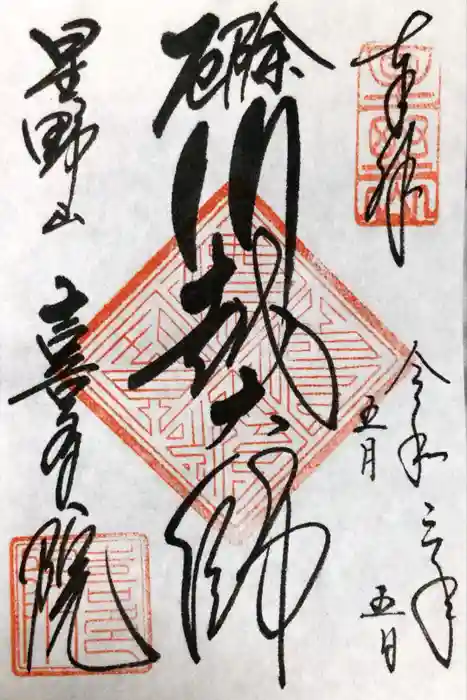 奉拝
令和三年
五月五日
厄除
川越大師
星野山
喜多院